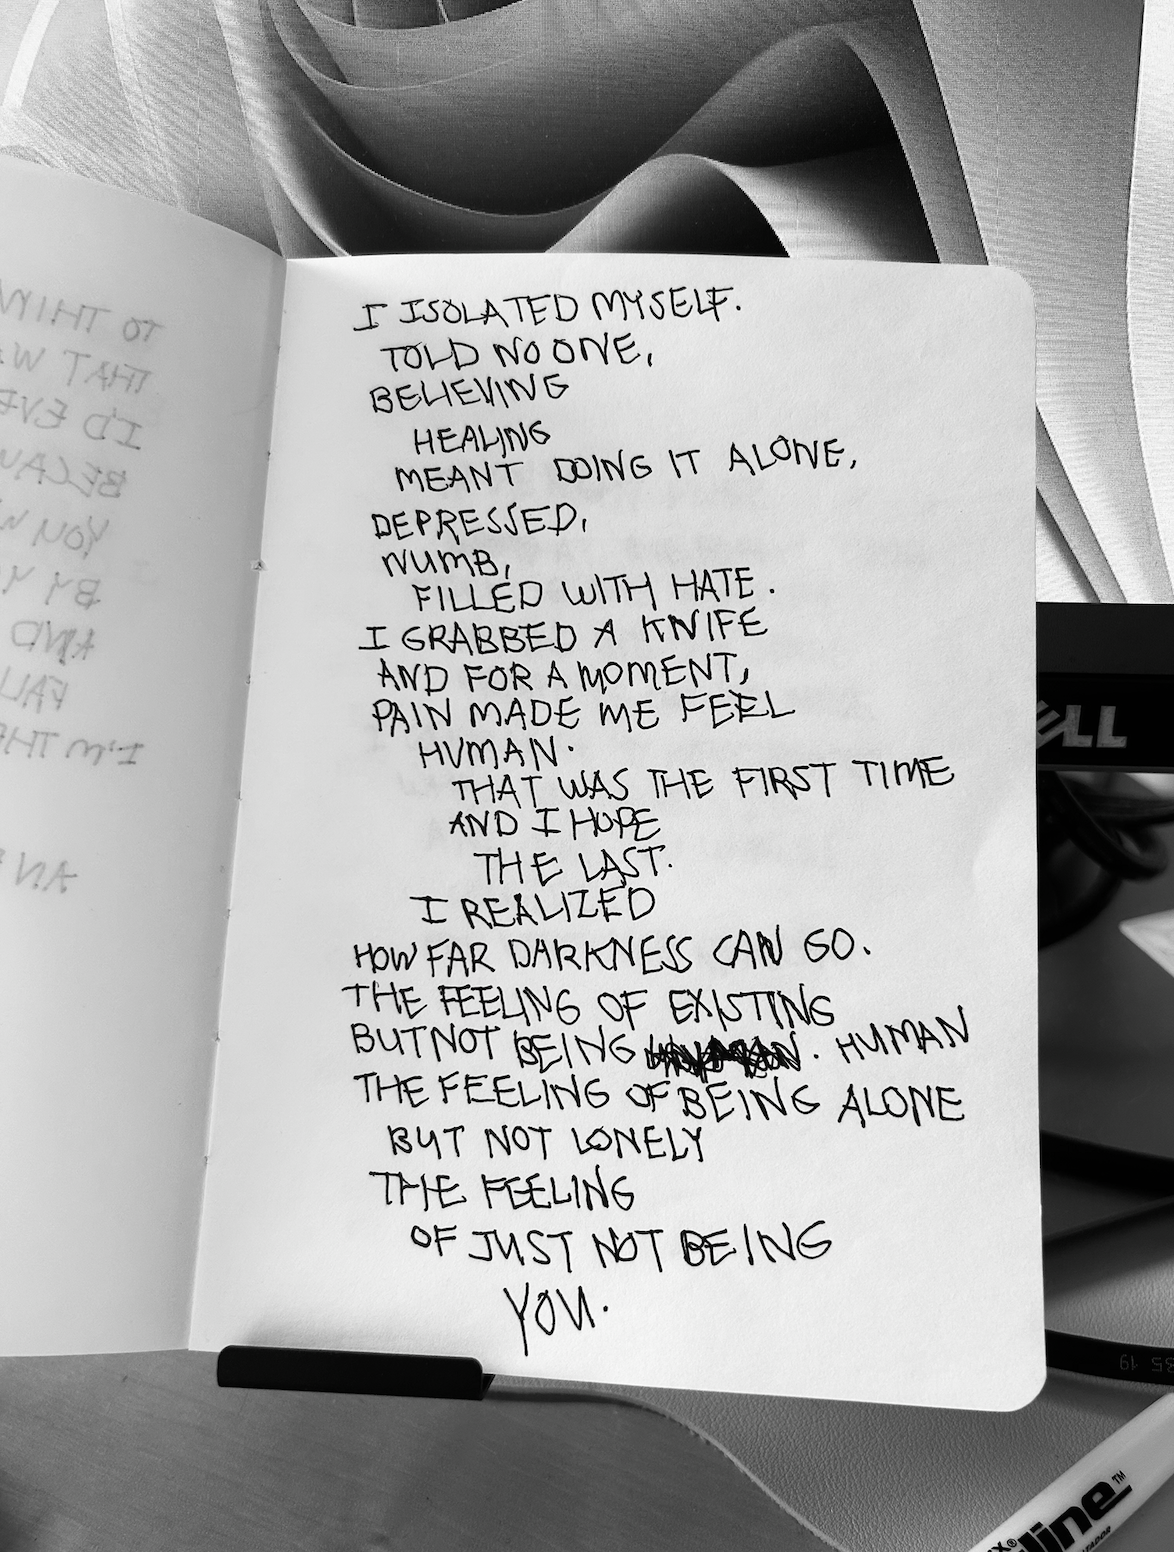 I ISOLATED MYSELF.
TOLD NO ONE,
BELIEVING
HEALING
MEANT DOING IT ALONE,
DEPRESSED,
NUMB,
FILLED WITH HATE.
I GRABBED A KNIFE
AND FOR A MOMENT,
PAIN MADE ME FEEL
HUMAN.
THAT WAS THE FIRST TIME
AND I HOPE
THE LAST.
I REALIZED
HOW FAR DARKNESS CAN GO.
THE FEELING OF EXISTING
BUT NOT BEING . HUMAN
THE FEELING OF BEING ALONE
BUT NOT LONELY
THE FEELING
OF JUST NOT BEING
YOU.
DELL
35 19
line™